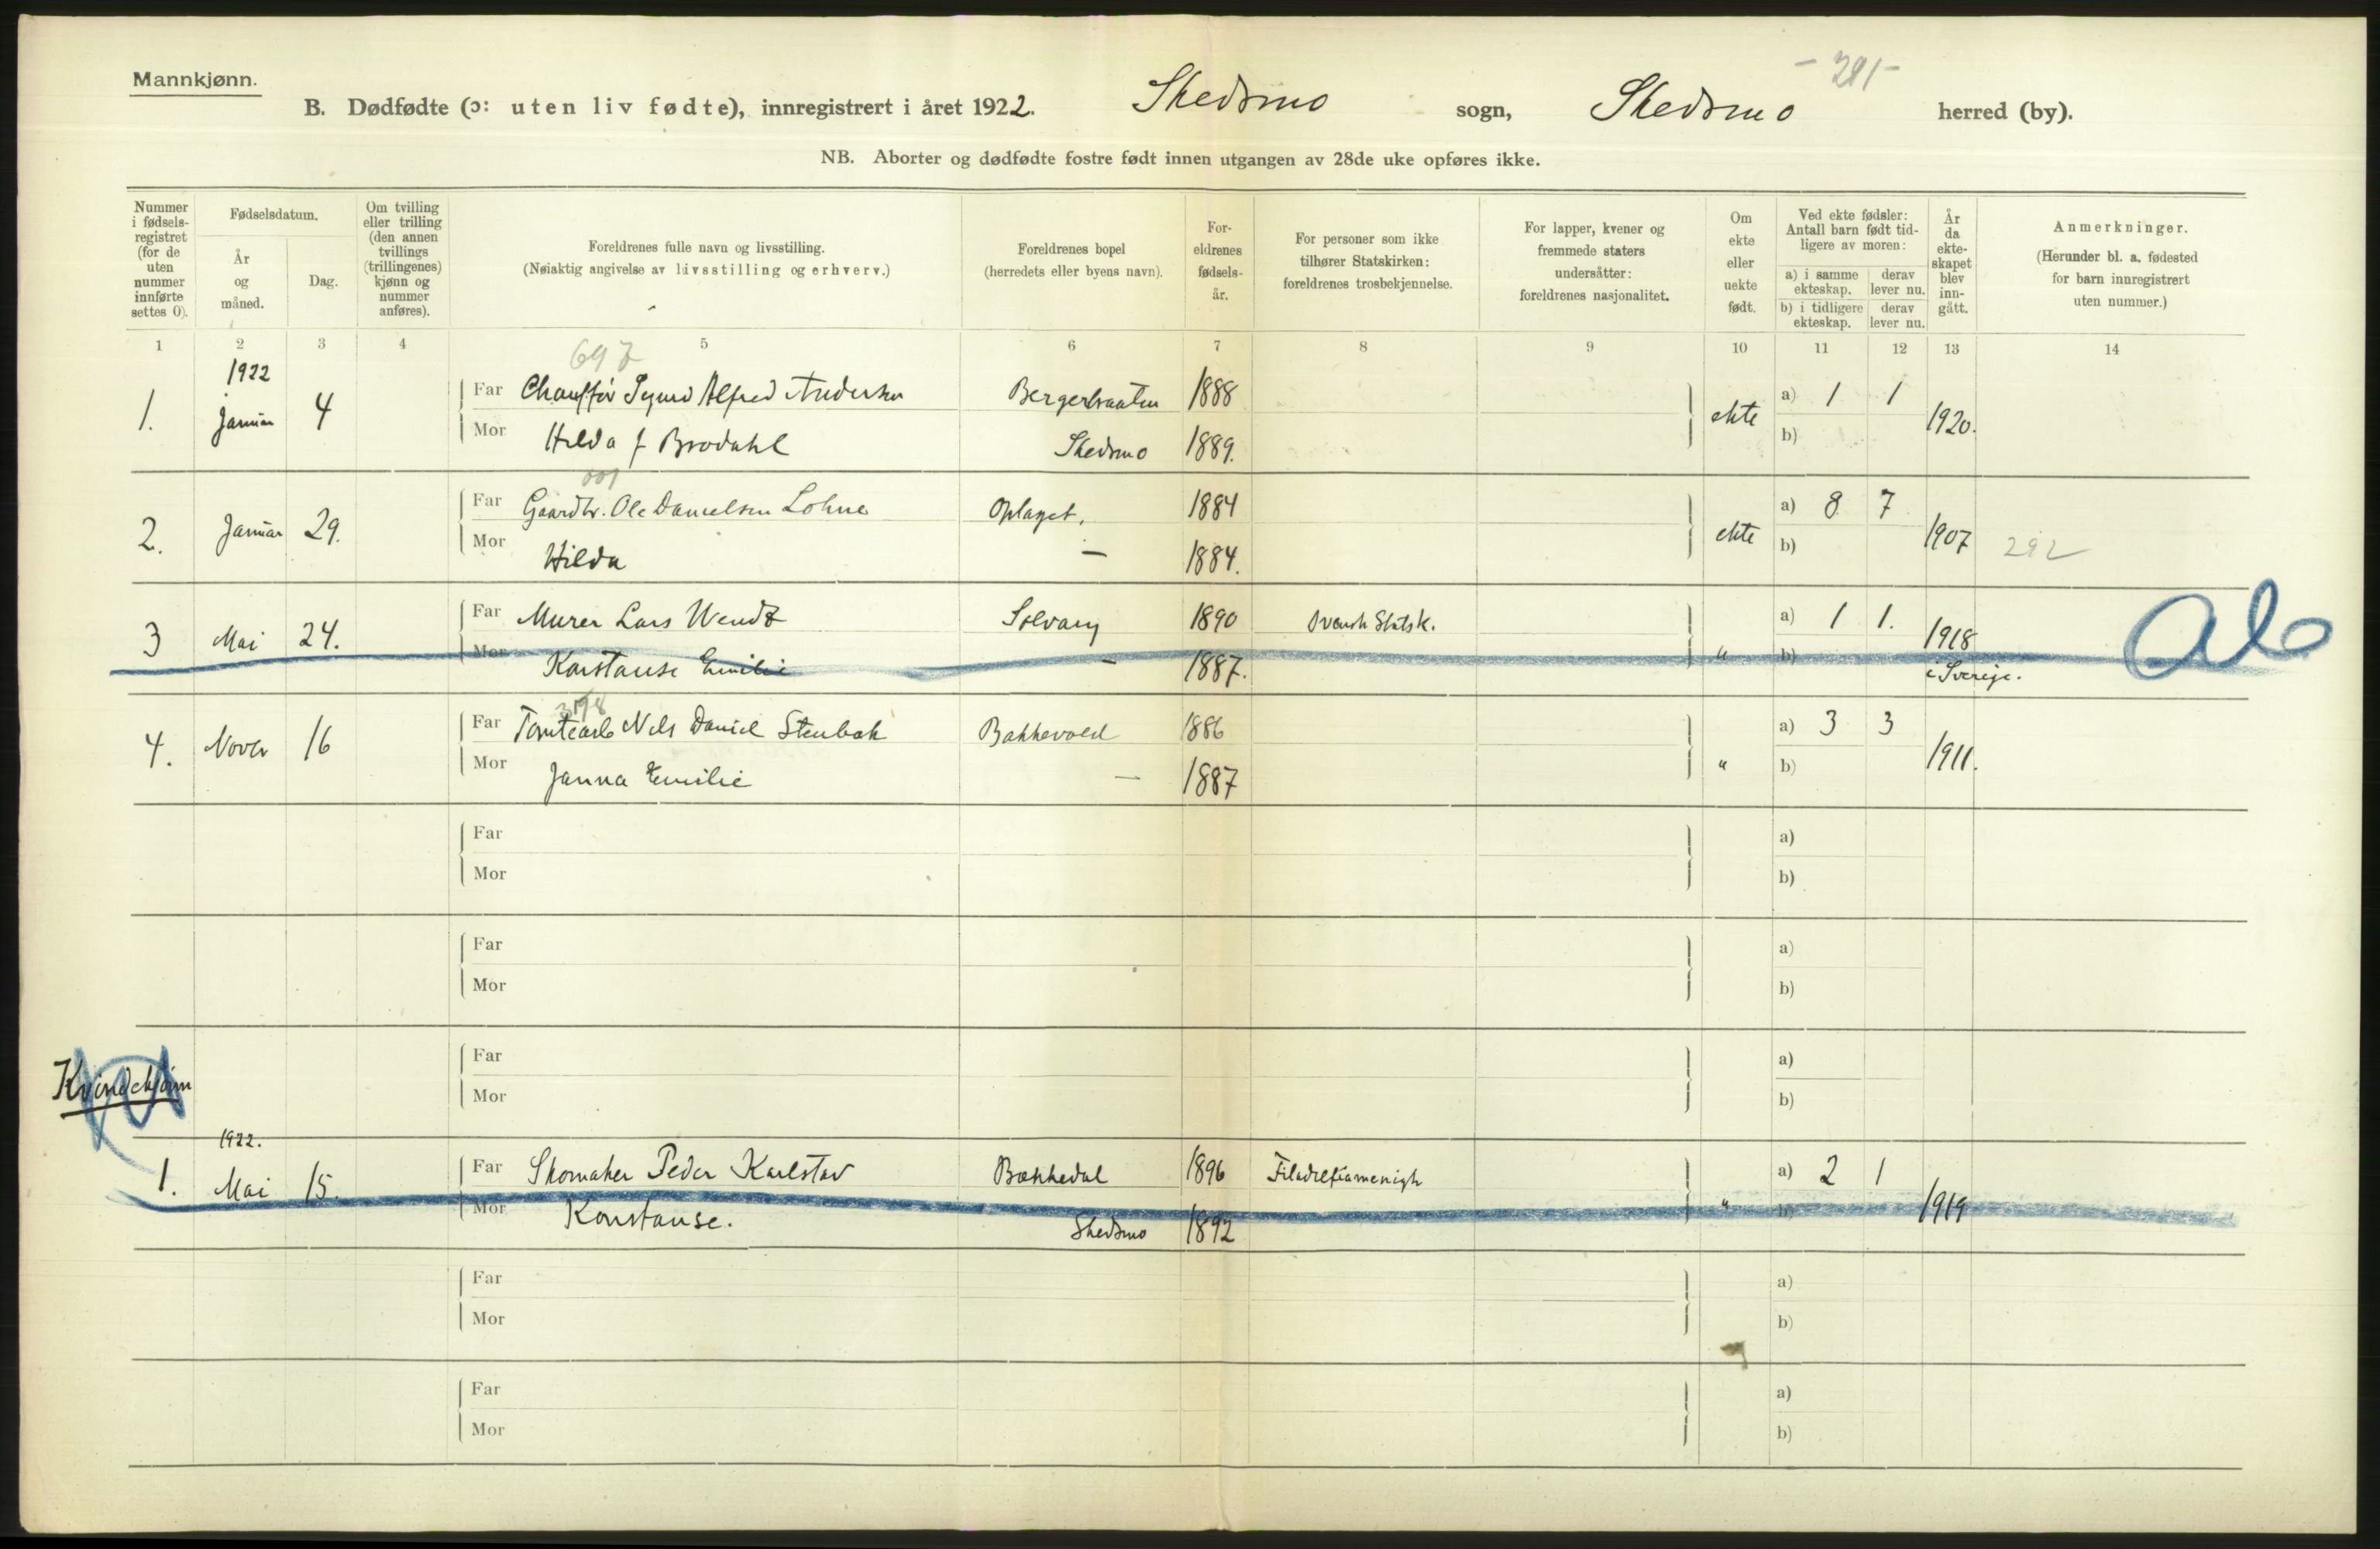 Mannkjønn.
- 291 -
B. Dødfødte (ɔ: uten liv fødte), innregistrert i året 1922. Skedsmo sogn, Skedsmo herred (by).
NB. Aborter og dødfødte fostre født innen utgangen av 28de uke opføres ikke.
Nummer i fødsels-registret (for de uten nummer innførte settes 0).
Fødselsdatum.
År og måned.
Dag.
Om tvilling eller trilling (den annen tvillings (trillingenes) kjønn og nummer anføres).
Foreldrenes fulle navn og livsstilling.
(Nøiaktig angivelse av livsstilling og erhverv.)
Foreldrenes bopel
(herredets eller byens navn).
For-eldrenes fødsels-år.
For personer som ikke tilhører Statskirken: foreldrenes trosbekjennelse.
For lapper, kvener og fremmede staters undersåtter: foreldrenes nasjonalitet.
Om ekte eller uekte født.
Ved ekte fødsler: Antall barn født tid-ligere av moren:
a) i samme ekteskap. derav lever nu.
b) i tidligere ekteskap. derav lever nu.
År da ekte-skapet blev inn-gått.
Anmerkninger.
(Herunder bl. a. fødested for barn innregistrert uten nummer.)
1 2 3 4 5 6 7 8 9 10 11 12 13 14
697
1922
1. Januar 4 Far Chauffør Sigurd Alfred Andersen Bergerbraaten 1888 ekte a) 1 1 1920.
Mor Hilda f Brodahl Skedsmo 1889. b)
001
2. Januar 29. Far Gaardbr. Ole Danielsen Lohne Oplaget. 1884 ekte a) 8 7 1907 292
Mor Hilda — 1884. b)
3 Mai 24. Far Murer Lars Wendt Solvang 1890 Svensk Statsk. " a) 1 1. 1918 i Sverige.
Mor Konstanse Emilie — 1887. b)
4. Novbr 16 Far Tomtearb Nils Daniel Stenbak Bakkevold 1886 " a) 3 3 1911.
Mor Janna Emilie — 1887 b)
Far a)
Mor b)
Far a)
Mor b)
Far a)
Kvindekjønn
Mor b)
1922.
1. Mai 15. Far Skomaker Peder Karlstad Bækkedal 1896 Filadelfiamenigh " a) 2 1 1919
Mor Konstanse. Skedsmo 1892 b)
Far a)
Mor b)
Far a)
Mor b)